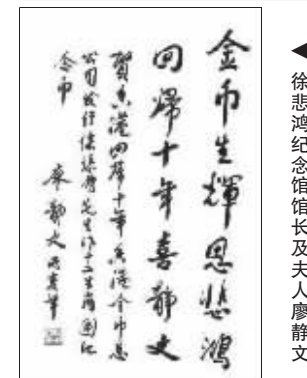 金币生辉思悲鸿
回归十年喜静文
贺香港回归十年香港金币总
公司发行徐悲鸿先生作十二生肖图纪
念币
廖静文
◀徐悲鸿纪念馆馆长及夫人廖静文